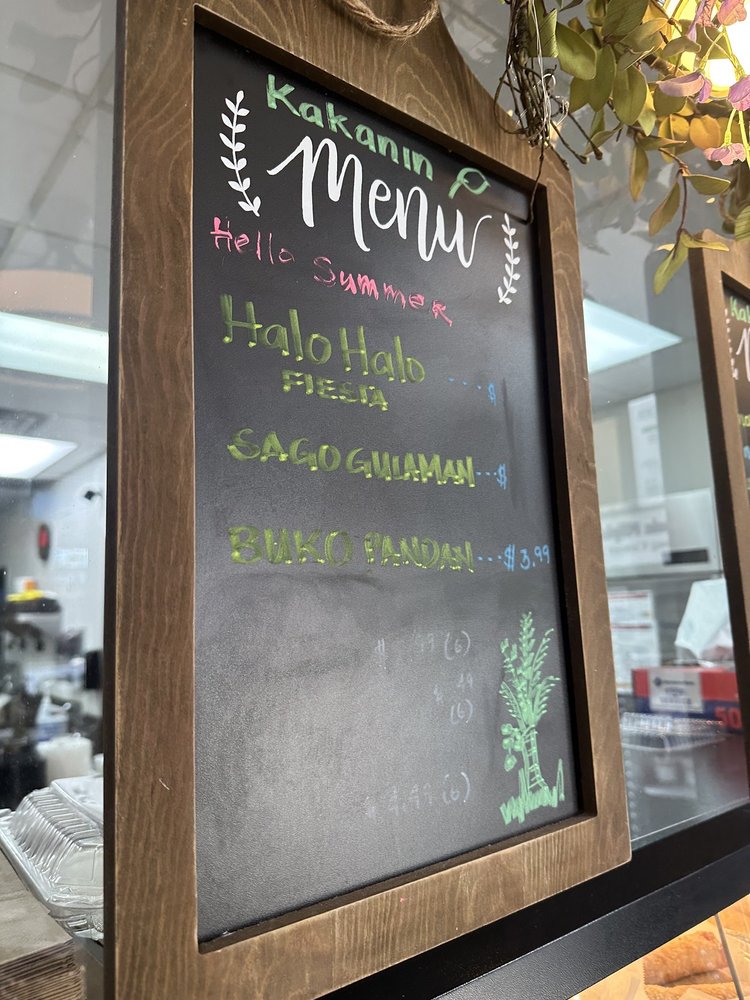 Kakanin
Menu
Hello Summer
Halo Halo
FIESTA ---$
SAGO GULAMAN ---$
BUKO PANDAN ---$ 3.99
$ 99 (6)
$ 49
(6)
$ 4.49 (6)
50